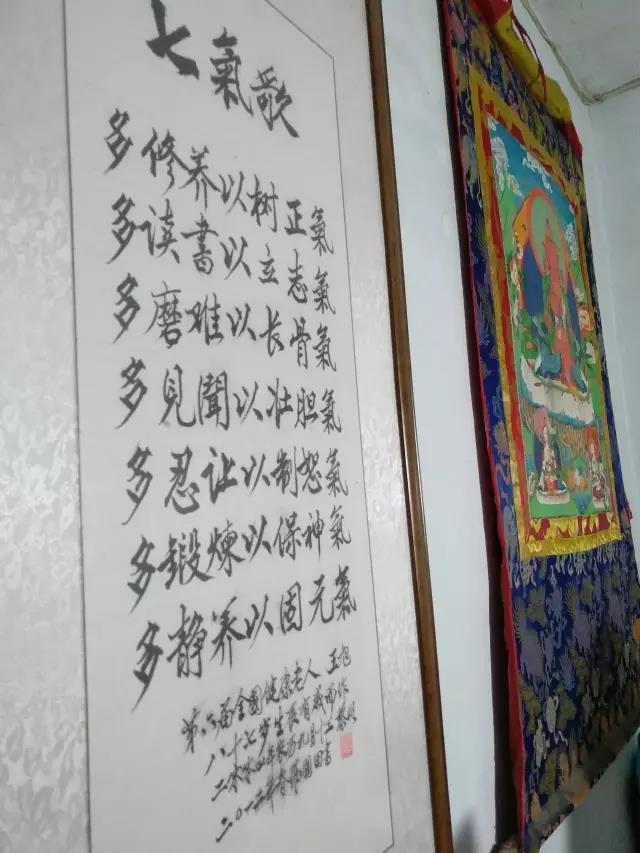 七氣歌
多修养以树正氣
多读書以立志氣
多磨难以长骨氣
多見聞以壮胆氣
多忍让以制怒氣
多鍛煉以保神氣
多静养以固元氣
第六届全國健康老人 王旭
八十七岁生辰有感而作
年农历九月十二
二〇一二年